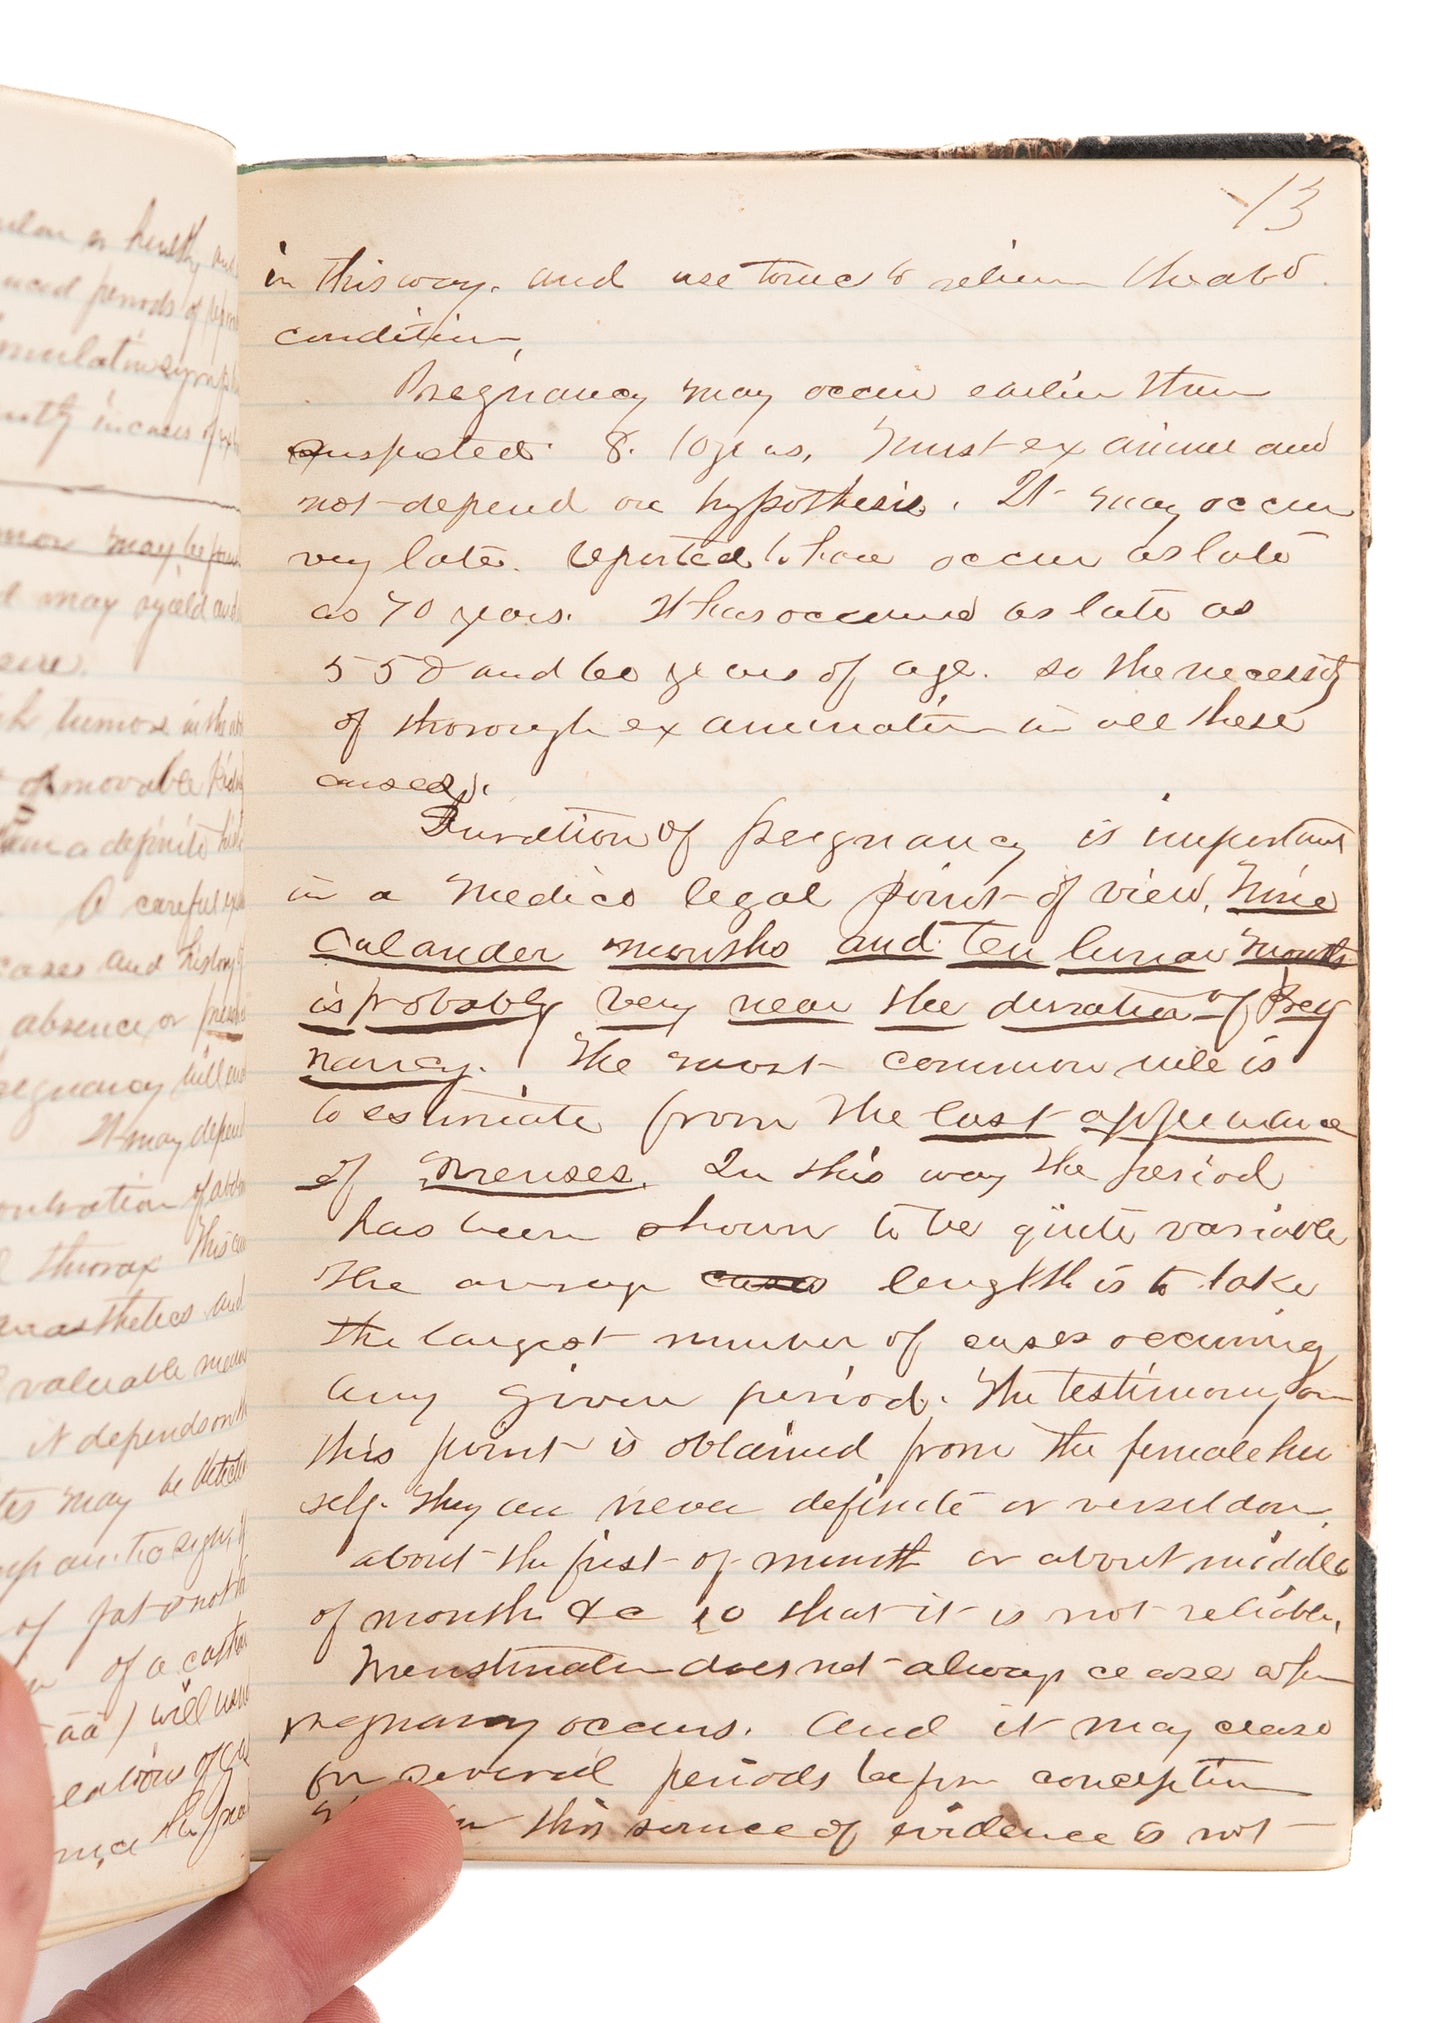 13
in this way. and use tonics to relieve the abd.
condition,
Pregnancy may occur earlier than
suspected. 8. 10 years, Must examine and
not depend on hypothesis. It may occur
very late. reported to have occur as late
as 70 years. It has occurred as late as
55 and 60 years of age. so the necessity
of thorough examination in all these
cases.
Duration of pregnancy is important
in a Medico legal point of view, Nine
Calander months and ten lunar months
is probably very near the duration of Preg
nancy. The most common rule is
to estimate from the last appearance
of menses. In this way the period
has been shown to be quite variable
The average cases length is to take
the largest number of cases occurring
any given period. The testimony on
this point is obtained from the female her
self. They are never definite or very seldom,
about the first of month or about middle
of month &c so that it is not reliable,
Menstruation does not always cease when
pregnancy occurs. And it may cease
for several periods before conception
this source of evidence is not
ulan or healthy and
periods of
in cases of
may be found
may yield and
tumors in the
or movable
a definite
A careful
cases and history
absence or
pregnancy will
It may depend
of
thorax This can
anasthetics and
valuable means
it depends on the
may be detected
of fat & not
of a
āā) will
of
the